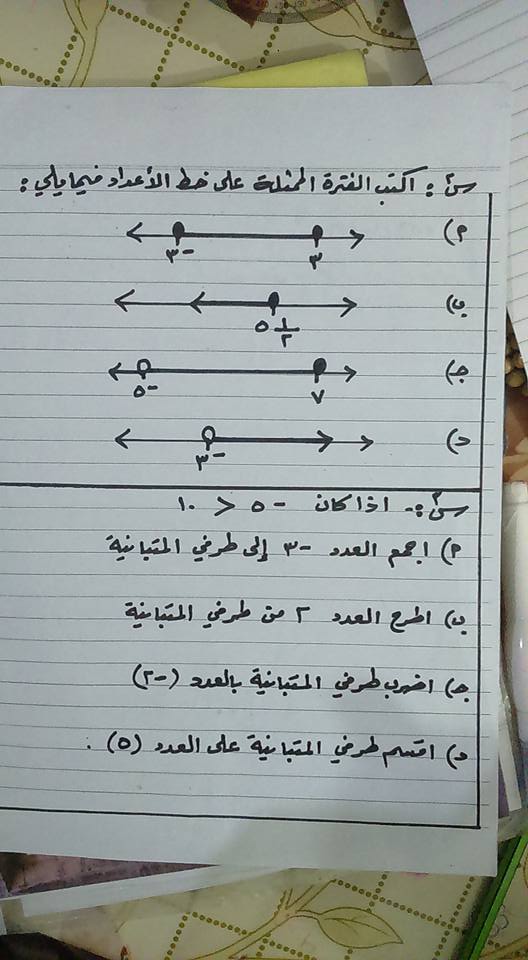 س١: اكتب الفترة الممثلة على خط الأعداد فيما يلي:
٣- ٣ (م
٥ ١/٢ (ب
٥- ٧ (جـ
٣- (د
س٢:- اذا كان -٥ < ١٠
م) اجمع العدد -٣ إلى طرفي المتباينة
ب) اطرح العدد ٢ من طرفي المتباينة
جـ) اضرب طرفي المتباينة بالعدد (-٢)
د) اقسم طرفي المتباينة على العدد (٥).